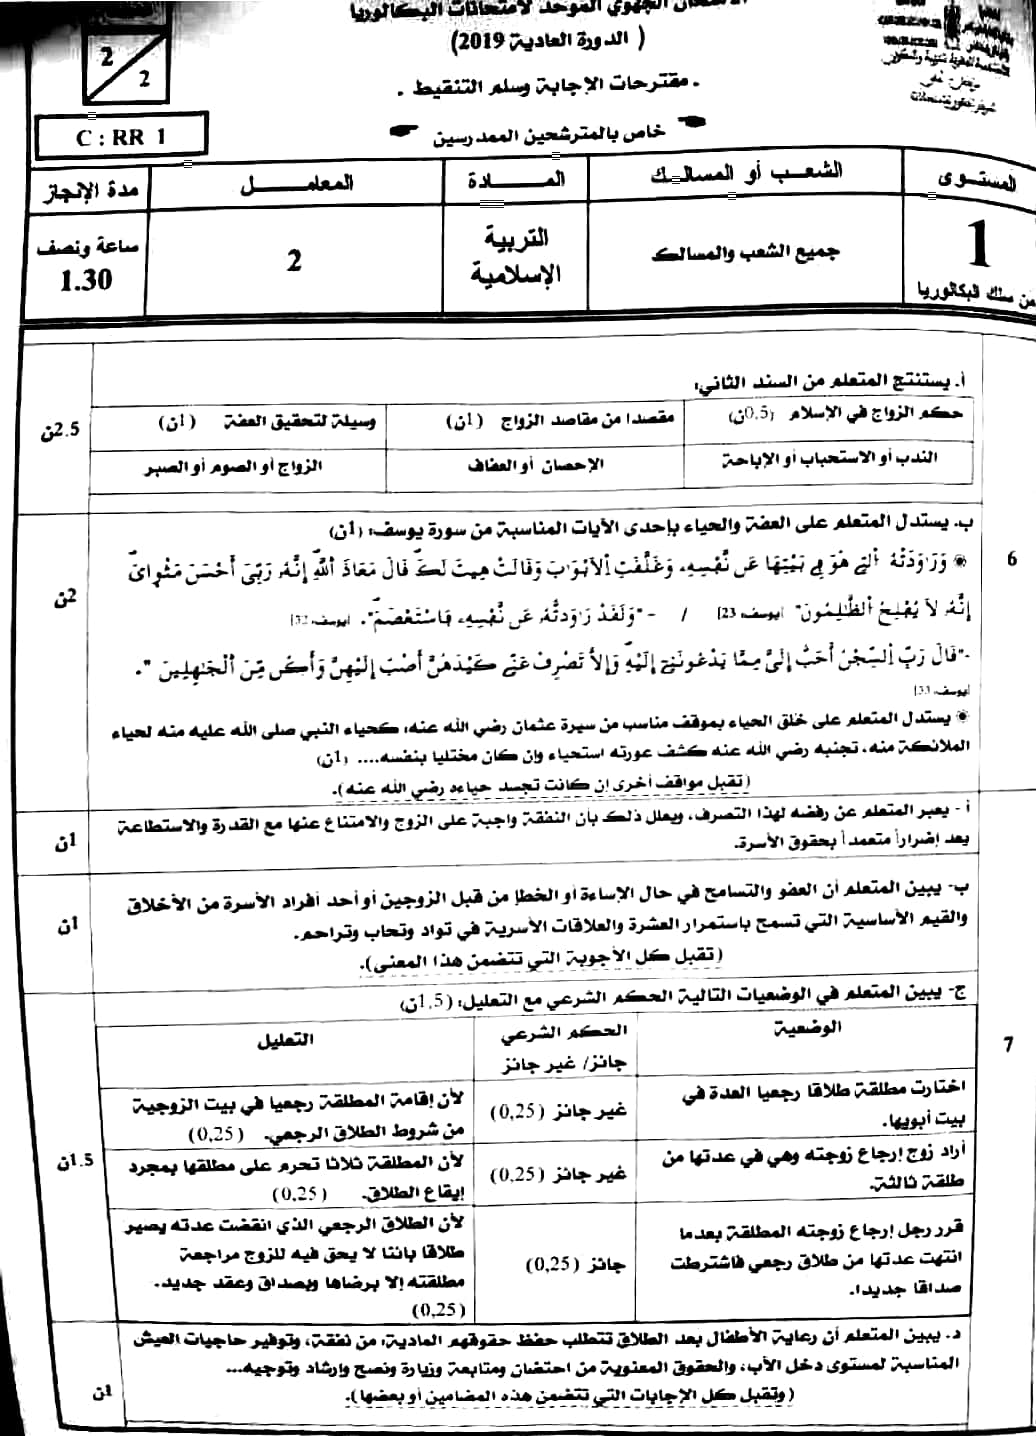 الامتحان الجهوي الموحد لامتحانات البكالوريا
( الدورة العادية 2019)
. مقترحات الإجابة وسلم التنقيط .
خاص بالمترشحين الممدرسين
2
2
C : RR 1
المستوى
الشعب أو المسالك
المادة
المعامل
مدة الإنجاز
1
من سلك البكالوريا
جميع الشعب والمسالك
التربية
الإسلامية
2
ساعة ونصف
1.30
6
أ. يستنتج المتعلم من السند الثاني:
حكم الزواج في الإسلام (0.5ن)
مقصدا من مقاصد الزواج (1ن)
وسيلة لتحقيق العفة (1ن)
الندب أو الاستحباب أو الإباحة
الإحصان أو العفاف
الزواج أو الصوم أو الصبر
2.5ن
ب. يستدل المتعلم على العفة والحياء بإحدى الآيات المناسبة من سورة يوسف: (1ن)
وَرَٰوَدَتْهُ اُلتِے هُوَ فِے بَيْتِهَا عَن نَّفْسِهِۦ وَغَلَّقَتِ اِلَابْوَٰبَ وَقَالَتْ هِيتَ لَكَۖ قَالَ مَعَاذَ اَللَّهِۖ إِنَّهُۥ رَبِّيَ أَحْسَنَ مَثْوَايَۖ
إِنَّهُۥ لَا يُفْلِحُ اُلظَّٰلِمُونَ" [يوسف 23] / -"وَلَقَدْ رَٰوَدتُّهُۥ عَن نَّفْسِهِۦ فَاسْتَعْصَمَۖ". [يوسف 32]
-"قَالَ رَبِّ اِلسِّجْنُ أَحَبُّ إِلَيَّ مِمَّا يَدْعُونَنِے إِلَيْهِۖ وَإِلَّا تَصْرِفْ عَنِّے كَيْدَهُنَّ أَصْبُ إِلَيْهِنَّ وَأَكُن مِّنَ اَلْجَٰهِلِينَ".
[يوسف 33]
يستدل المتعلم على خلق الحياء بموقف مناسب من سيرة عثمان رضي الله عنه، كحياء النبي صلى الله عليه منه لحياء
الملائكة منه، تجنبه رضي الله عنه كشف عورته استحياء وإن كان مختليا بنفسه.... (1ن)
(تقبل مواقف أخرى إن كانت تجسد حياءه رضي الله عنه).
2ن
7
أ - يعبر المتعلم عن رفضه لهذا التصرف، ويعلل ذلك بأن النفقة واجبة على الزوج والامتناع عنها مع القدرة والاستطاعة
يعد إضراراً متعمداً بحقوق الأسرة.
1ن
ب- يبين المتعلم أن العفو والتسامح في حال الإساءة أو الخطإ من قبل الزوجين أو أحد أفراد الأسرة من الأخلاق
والقيم الأساسية التي تسمح باستمرار العشرة والعلاقات الأسرية في تواد وتحاب وتراحم.
(تقبل كل الأجوبة التي تتضمن هذا المعنى).
1ن
ج- يبين المتعلم في الوضعيات التالية الحكم الشرعي مع التعليل: (1,5ن)
الوضعية
الحكم الشرعي
جائز/ غير جائز
التعليل
اختارت مطلقة طلاقا رجعيا العدة في
بيت أبويها.
غير جائز (0,25)
لأن إقامة المطلقة رجعيا في بيت الزوجية
من شروط الطلاق الرجعي. (0,25)
أراد زوج إرجاع زوجته وهي في عدتها من
طلقة ثالثة.
غير جائز (0,25)
لأن المطلقة ثلاثا تحرم على مطلقها بمجرد
إيقاع الطلاق. (0,25)
قرر رجل إرجاع زوجته المطلقة بعدما
انتهت عدتها من طلاق رجعي فاشترطت
صداقا جديدا.
جائز (0,25)
لأن الطلاق الرجعي الذي انقضت عدته يصير
طلاقا بائنا لا يحق فيه للزوج مراجعة
مطلقته إلا برضاها وبصداق وعقد جديد.
(0,25)
1.5ن
د. يبين المتعلم أن رعاية الأطفال بعد الطلاق تتطلب حفظ حقوقهم المادية، من نفقة، وتوفير حاجيات العيش
المناسبة لمستوى دخل الأب، والحقوق المعنوية من احتضان ومتابعة وزيارة ونصح وإرشاد وتوجيه...
(وتقبل كل الإجابات التي تتضمن هذه المضامين أو بعضها).
1ن